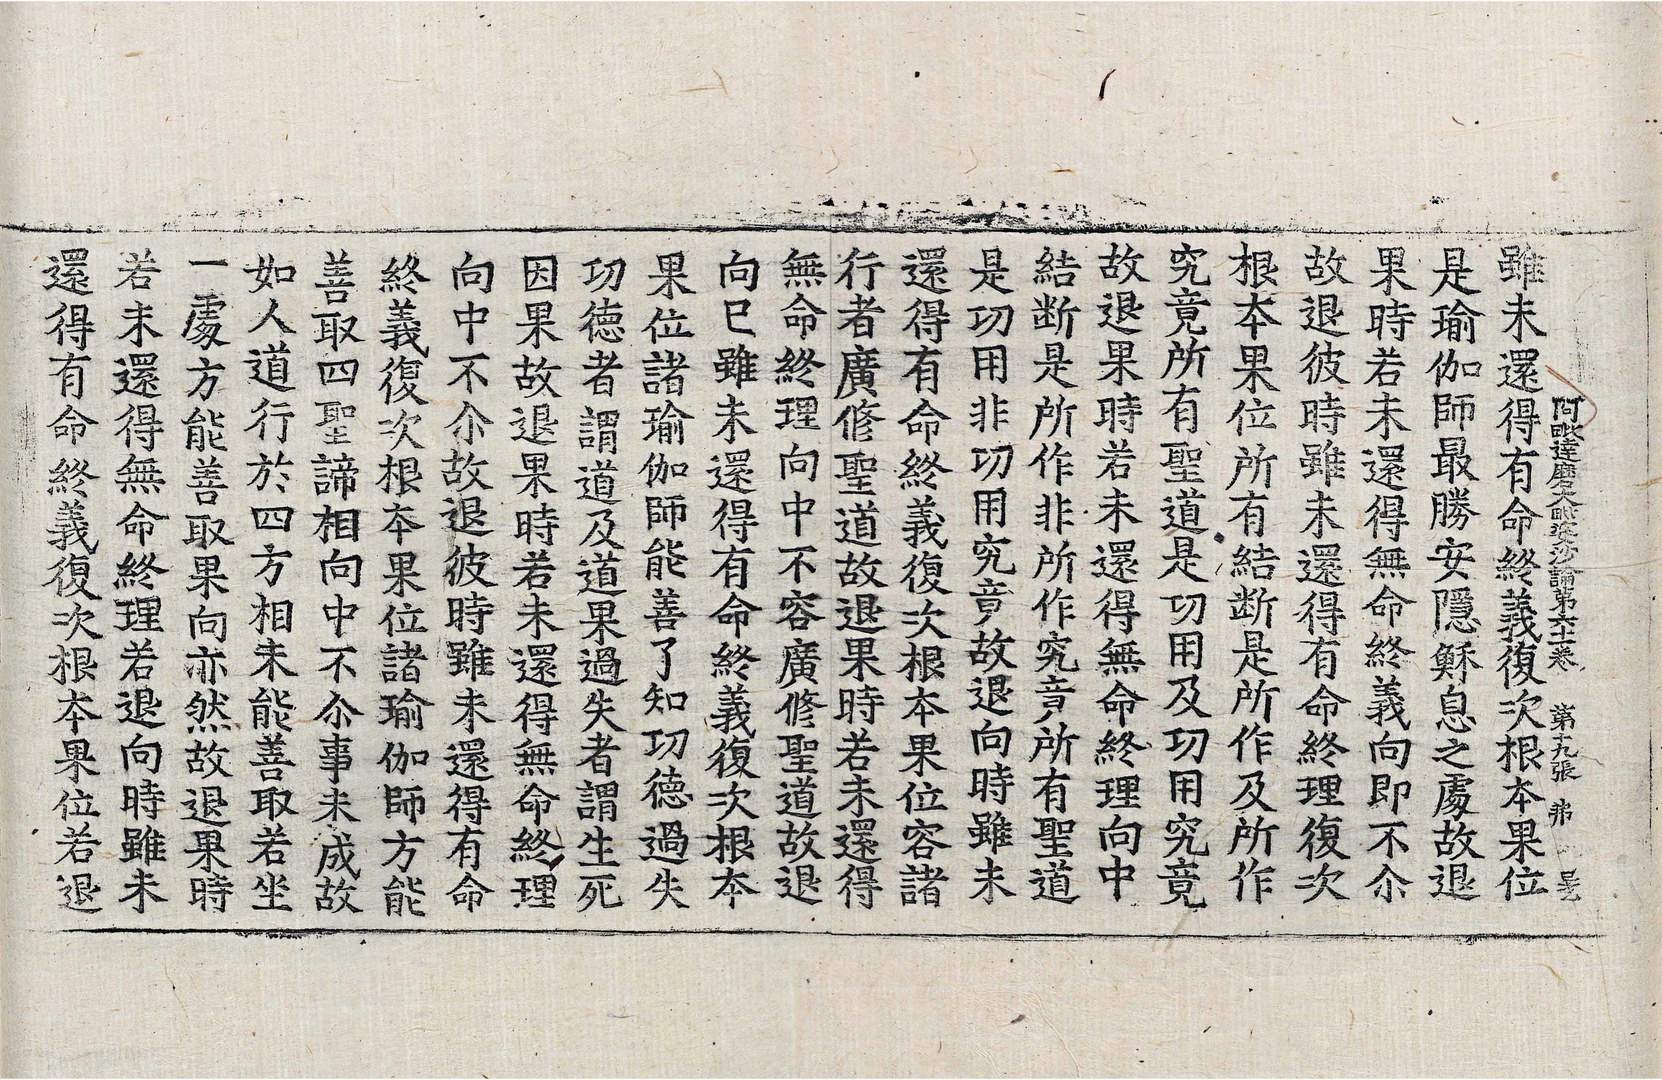 阿毗達磨大毗婆沙論第六十一卷 第十九張 弗
雖未還得有命終義復次根本果位
是瑜伽師最勝安隱穌息之處故退
果時若未還得無命終義向即不尒
故退彼時雖未還得有命終理復次
根本果位所有結断是所作及所作
究竟所有聖道是功用及功用究竟
故退果時若未還得無命終理向中
結断是所作非所作究竟所有聖道
是功用非功用究竟故退向時雖未
還得有命終義復次根本果位容諸
行者廣修聖道故退果時若未還得
無命終理向中不容廣修聖道故退
向已雖未還得有命終義復次根本
果位諸瑜伽師能善了知功德過失
功德者謂道及道果過失者謂生死
因果故退果時若未還得無命終理
向中不尒故退彼時雖未還得有命
終義復次根本果位諸瑜伽師方能
善取四聖諦相向中不尒事未成故
如人道行於四方相未能善取若坐
一處方能善取果向亦然故退果時
若未還得無命終理若退向時雖未
還得有命終義復次根本果位若退